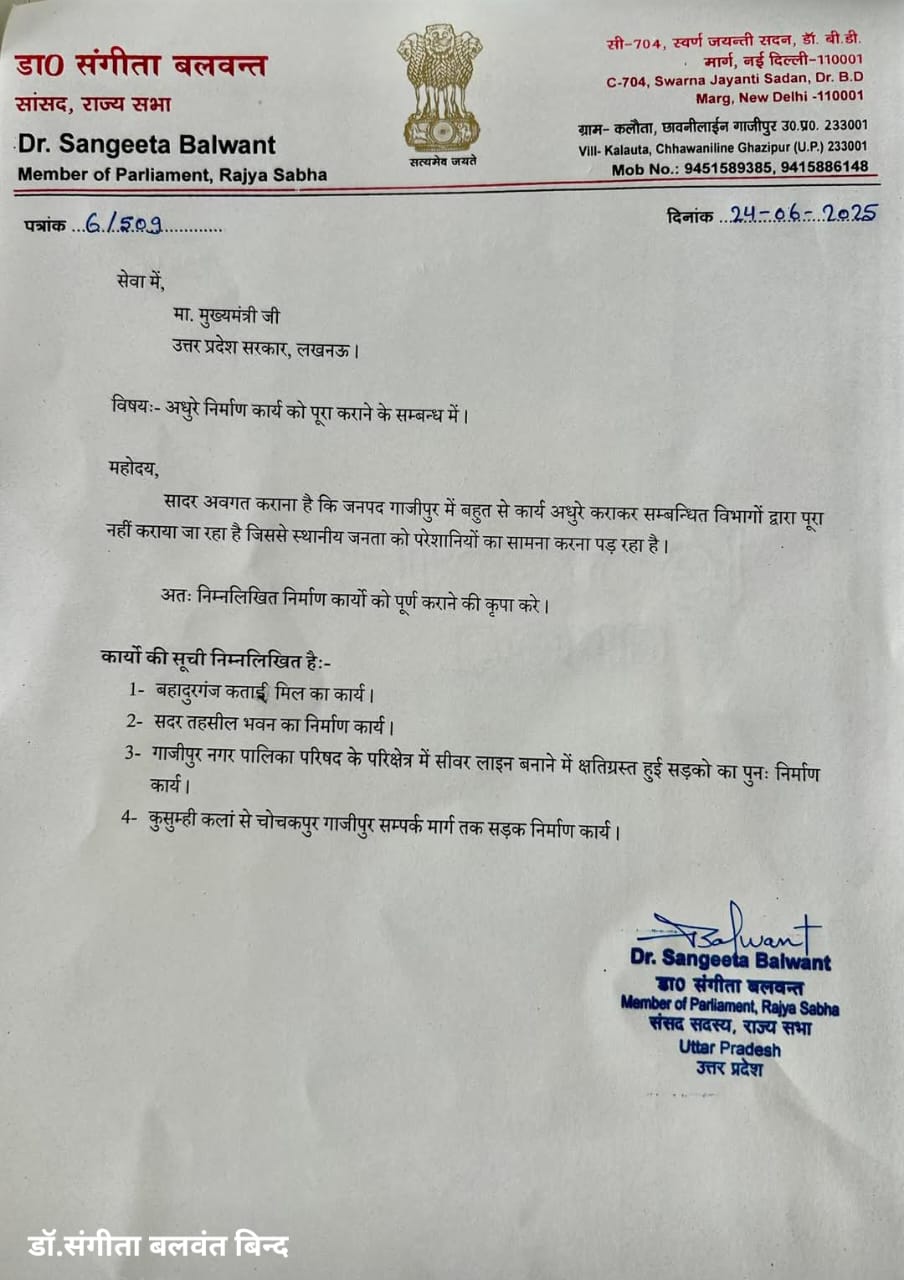 डा0 संगीता बलवन्त
सांसद, राज्य सभा
Dr. Sangeeta Balwant
Member of Parliament, Rajya Sabha
सत्यमेव जयते
सी-704, स्वर्ण जयन्ती सदन, डॉ. बी.डी.
मार्ग, नई दिल्ली-110001
C-704, Swarna Jayanti Sadan, Dr. B.D
Marg, New Delhi -110001
ग्राम- कलौता, छावनीलाईन गाजीपुर उ0.प्र0. 233001
Vill- Kalauta, Chhawaniline Ghazipur (U.P.) 233001
Mob No.: 9451589385, 9415886148
पत्रांक ...6/509.............
दिनांक ...24-06-2025
सेवा में,
मा. मुख्यमंत्री जी
उत्तर प्रदेश सरकार, लखनऊ।
विषयः- अधुरे निर्माण कार्य को पूरा कराने के सम्बन्ध में।
महोदय,
सादर अवगत कराना है कि जनपद गाजीपुर में बहुत से कार्य अधुरे कराकर सम्बन्धित विभागों द्वारा पूरा
नहीं कराया जा रहा है जिससे स्थानीय जनता को परेशानियों का सामना करना पड़ रहा है।
अतः निम्नलिखित निर्माण कार्यो को पूर्ण कराने की कृपा करे।
कार्यो की सूची निम्नलिखित हैः-
1- बहादुरगंज कताई मिल का कार्य।
2- सदर तहसील भवन का निर्माण कार्य।
3- गाजीपुर नगर पालिका परिषद के परिक्षेत्र में सीवर लाइन बनाने में क्षतिग्रस्त हुई सड़को का पुनः निर्माण
कार्य।
4- कुसुम्ही कलां से चोचकपुर गाजीपुर सम्पर्क मार्ग तक सड़क निर्माण कार्य।
Balwant
Dr. Sangeeta Balwant
डा0 संगीता बलवन्त
Member of Parliament, Rajya Sabha
संसद सदस्य, राज्य सभा
Uttar Pradesh
उत्तर प्रदेश
डॉ.संगीता बलवंत बिन्द